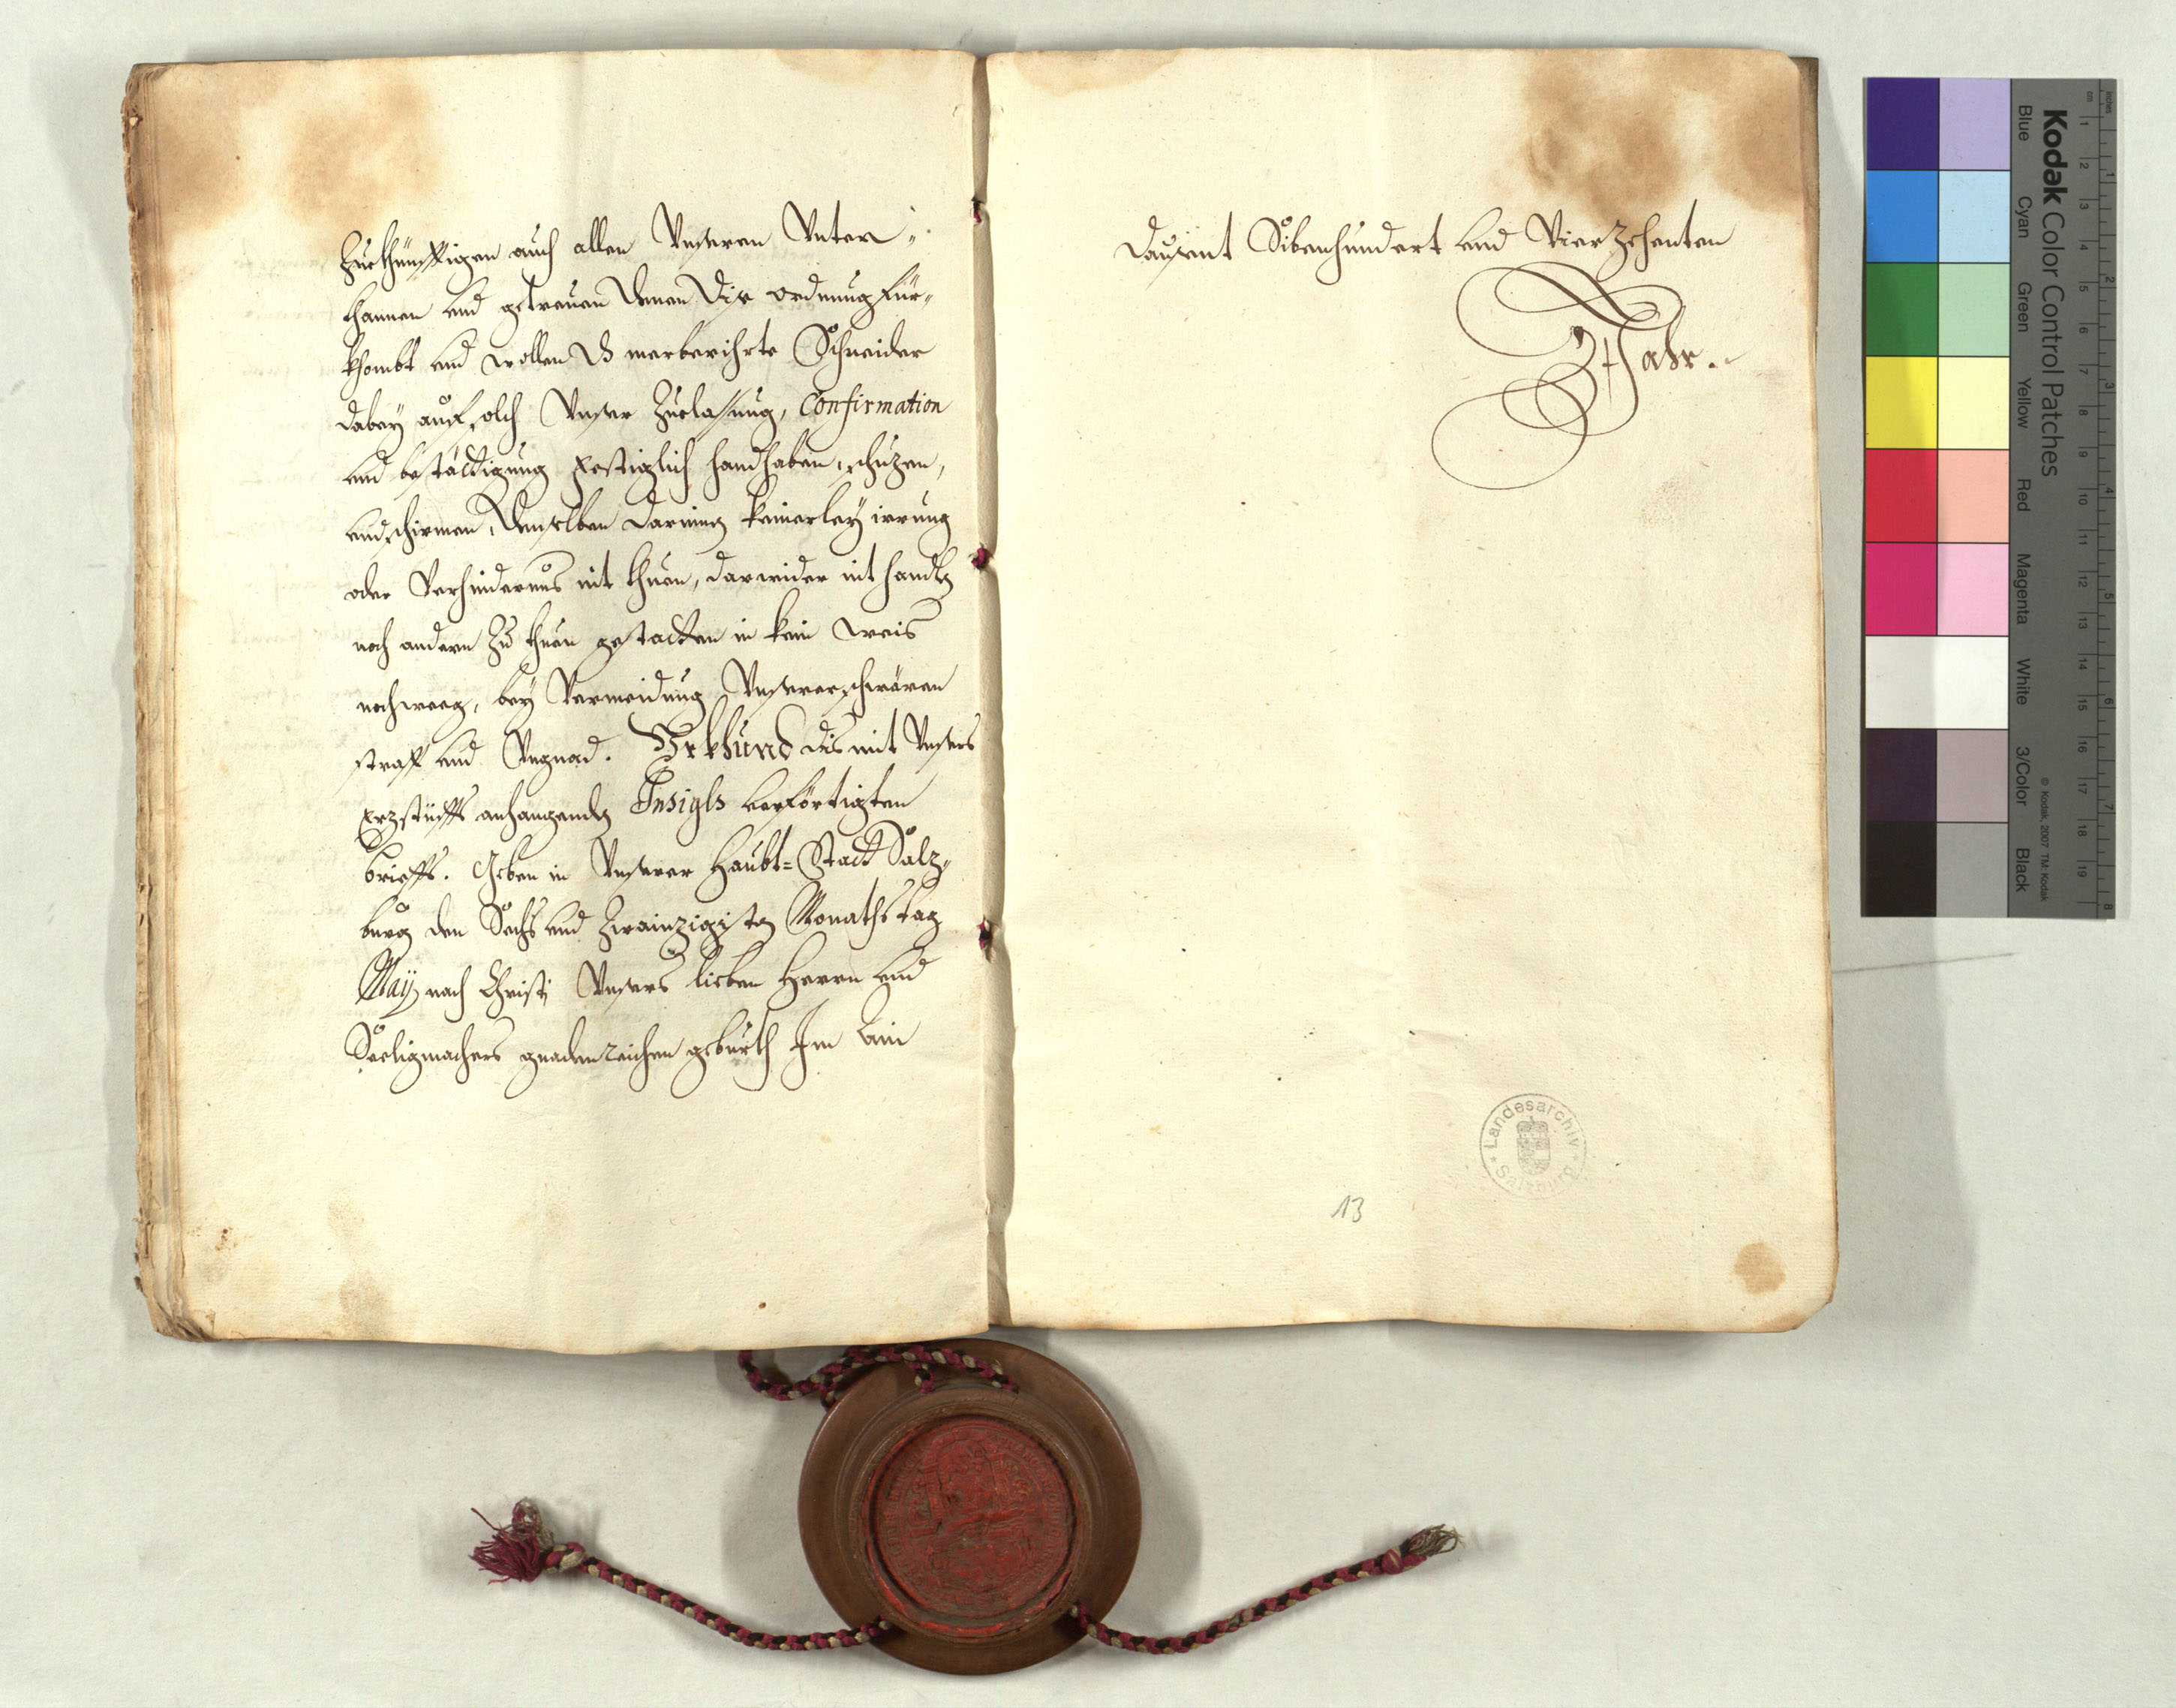 Zuekhünfftigen auch allen Unseren Unter„
thannen und getreuen denen dise ordnung für„
khombt und wollen das merberihrte Schneider
dabey auf solch Unser Zuelassung, Confirmation
und bestättigung festiglich handhaben, schuzen,
und schirmen, denselben darinnen keinerley irrung
oder Verhindernus nit thuen, darwider nit handlen
noch andern zu thuen gestatten in kein weis
noch weeg, bey Vermeidung Unserer schwären
straff und Ungnad. Urkhund dis mit Unsers
Erzstüffts anhangenden Insigls verförtigten
brieffs. Geben in Unserer Haubt=Statt Salz„
burg den Sechs und Zwainzigisten Monathstag
May, nach Christi Unsers lieben Herrn und
Seeligmachers gnadenreichen geburth Im Ain
Dausent Sibenhundert und Vierzehenten
Jahr.
13
Landesarchiv
Salzburg
Kodak Color Control Patches
© Kodak, 2007 TM: Kodak
Blue Cyan Green Yellow Red Magenta White 3/Color Black
inches 1 2 3 4 5 6 7 8
cm 1 2 3 4 5 6 7 8 9 10 11 12 13 14 15 16 17 18 19